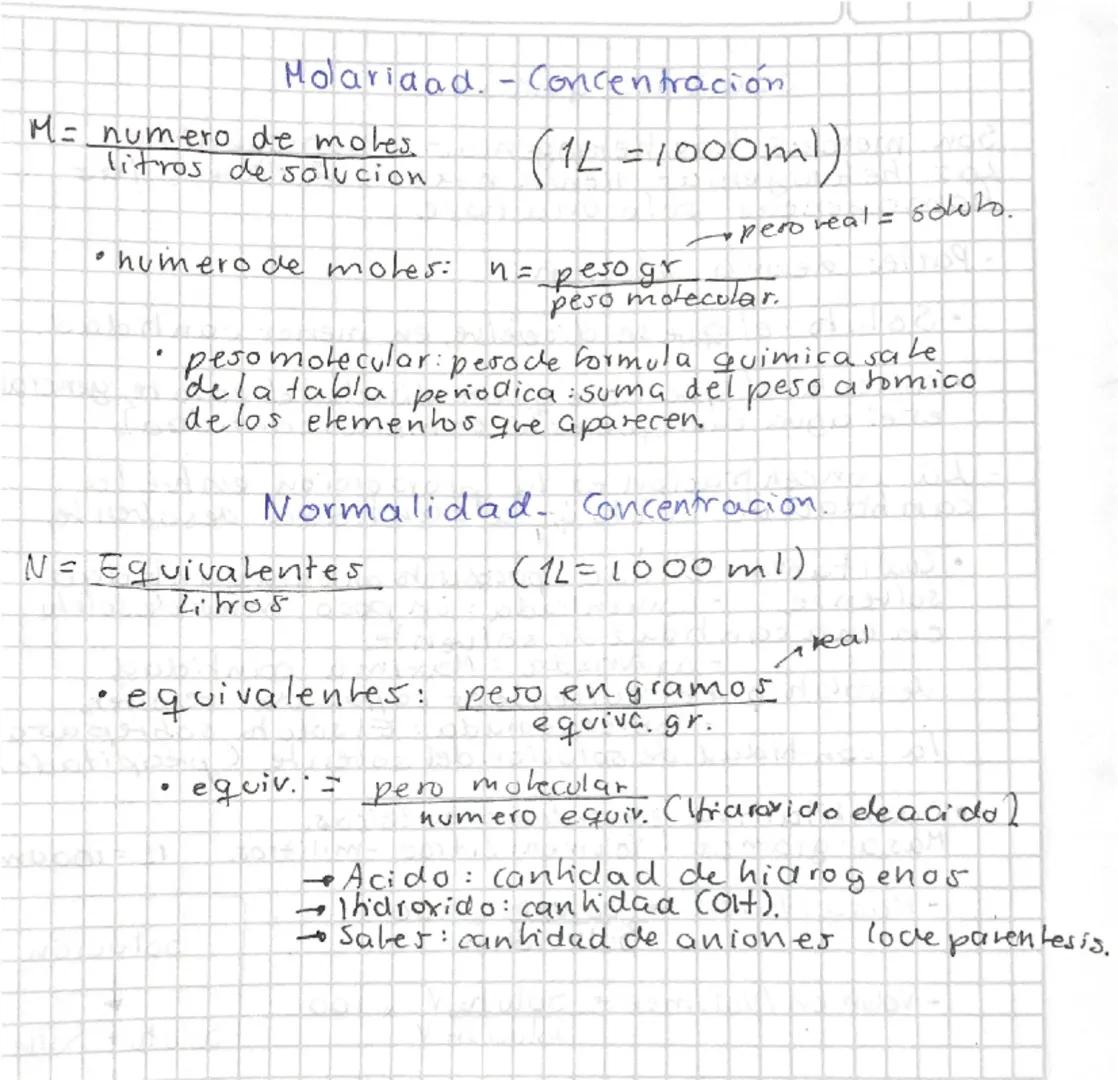 Molaridad. - Concentración
M = numero de moles
litros de solucion
(1L = 1000ml)
→ peso real = soluto.
• numero de moles: n = peso gr
peso molecular.
• peso molecular: peso de formula quimica sale
de la tabla periodica : suma del peso atomico
de los elementos que aparecen.
Normalidad - Concentracion.
N = Equivalentes
Litros
(1L = 1000 ml)
real
• equivalentes: peso en gramos
equiva. gr.
• equiv. : = peso molecular
numero equiv. (Hidroxido de acido)
→ Acido : cantidad de hidrogenos
→ Hidroxido : cantidad (OH).
→ Sales : cantidad de aniones lo de parentesis.